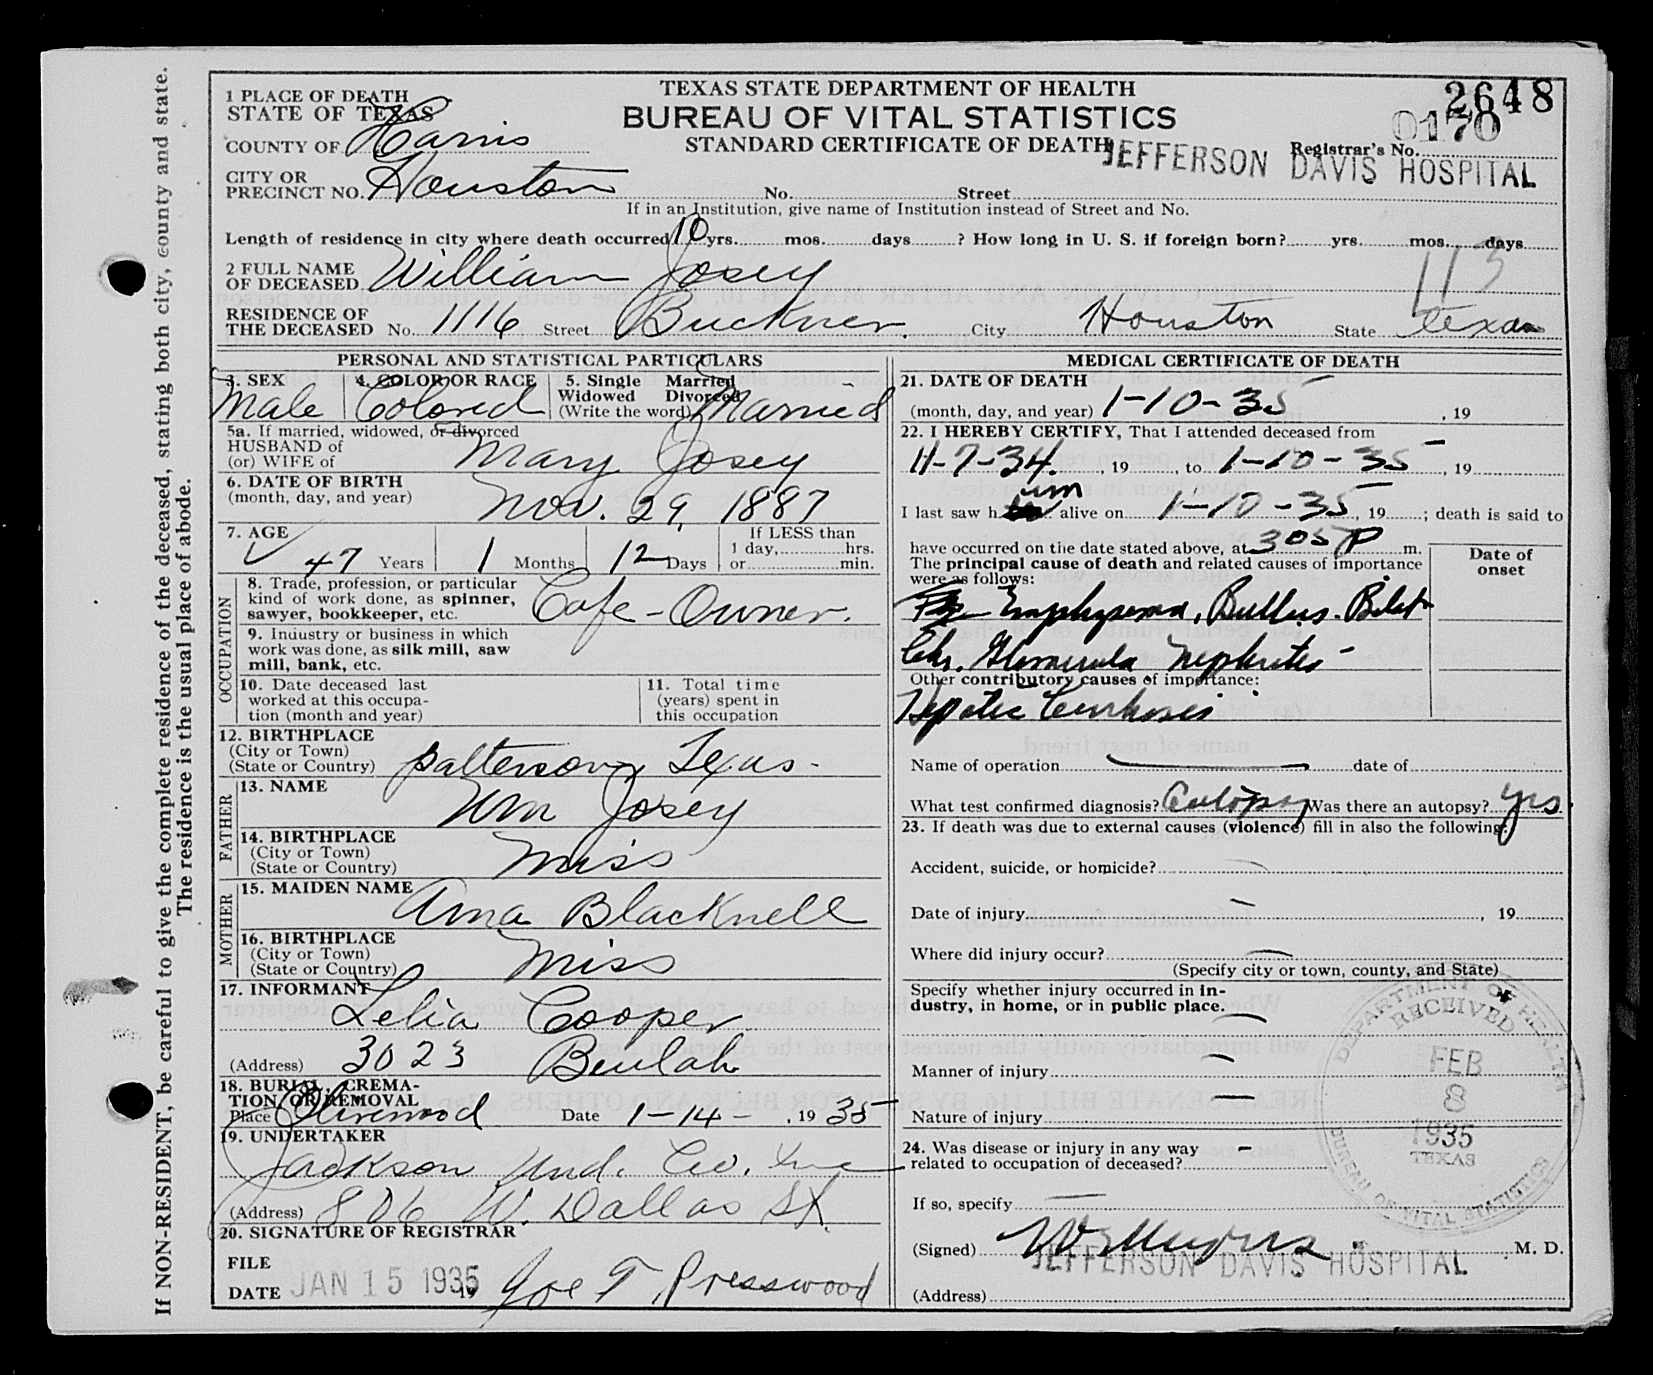 If NON-RESIDENT, be careful to give the complete residence of the deceased, stating both city, county and state.
The residence is the usual place of abode.
TEXAS STATE DEPARTMENT OF HEALTH
BUREAU OF VITAL STATISTICS
STANDARD CERTIFICATE OF DEATH
2648
0170
Registrar's No.
JEFFERSON DAVIS HOSPITAL
1 PLACE OF DEATH
STATE OF TEXAS
COUNTY OF Harris
CITY OR
PRECINCT NO. Houston No. Street
If in an Institution, give name of Institution instead of Street and No.
Length of residence in city where death occurred 10 yrs. mos. days ? How long in U. S. if foreign born? yrs. mos. days
2 FULL NAME
OF DECEASED William Josey
113
RESIDENCE OF
THE DECEASED No. 1116 Street Buckner. City Houston State Texas
PERSONAL AND STATISTICAL PARTICULARS
3. SEX 4. COLOR OR RACE 5. Single Married
Widowed Divorced
(Write the word)
Male Colored Married
5a. If married, widowed, or divorced
HUSBAND of
(or) WIFE of Mary Josey
6. DATE OF BIRTH
(month, day, and year) Nov. 29, 1887
7. AGE If LESS than
47 Years 1 Months 12 Days 1 day, hrs.
or min.
OCCUPATION
8. Trade, profession, or particular
kind of work done, as spinner,
sawyer, bookkeeper, etc. Cafe-Owner.
9. Industry or business in which
work was done, as silk mill, saw
mill, bank, etc.
10. Date deceased last
worked at this occupa-
tion (month and year)
11. Total time
(years) spent in
this occupation
12. BIRTHPLACE
(City or Town)
(State or Country) Patterson, Texas-
FATHER
13. NAME Wm Josey
14. BIRTHPLACE
(City or Town)
(State or Country) Miss
MOTHER
15. MAIDEN NAME Ama Blacknell
16. BIRTHPLACE
(City or Town)
(State or Country) Miss
17. INFORMANT
Lelia Cooper
(Address) 3023 Beulah
18. BURIAL, CREMA-
TION OR REMOVAL
Place Olivewood Date 1-14- , 19 35
19. UNDERTAKER
Jackson Und. Co. Inc
(Address) 806 W. Dallas St.
20. SIGNATURE OF REGISTRAR
FILE
DATE JAN 15 1935 Joe T Presswood
MEDICAL CERTIFICATE OF DEATH
21. DATE OF DEATH
(month, day, and year) 1-10-35 , 19
22. I HEREBY CERTIFY, That I attended deceased from
11-7-34 , 19 , to 1-10-35 , 19
I last saw h im alive on 1-10-35, 19 ; death is said to
have occurred on the date stated above, at 305 P m.
The principal cause of death and related causes of importance
were as follows:
Date of
onset
Emphysema, Bullus. Bilat
Chr. Glomerula Nephritis-
Other contributory causes of importance:
Hepatic Cirrhosis
Name of operation date of
What test confirmed diagnosis? Autopsy Was there an autopsy? yes.
23. If death was due to external causes (violence) fill in also the following:
Accident, suicide, or homicide?
Date of injury - , 19
Where did injury occur?
(Specify city or town, county, and State)
Specify whether injury occurred in in-
dustry, in home, or in public place.
Manner of injury
Nature of injury
24. Was disease or injury in any way
related to occupation of deceased? -
If so, specify
(Signed) M. D.
JEFFERSON DAVIS HOSPITAL
(Address)
DEPARTMENT OF HEALTH
RECEIVED
FEB
8
1935
TEXAS
BUREAU OF VITAL STATISTICS